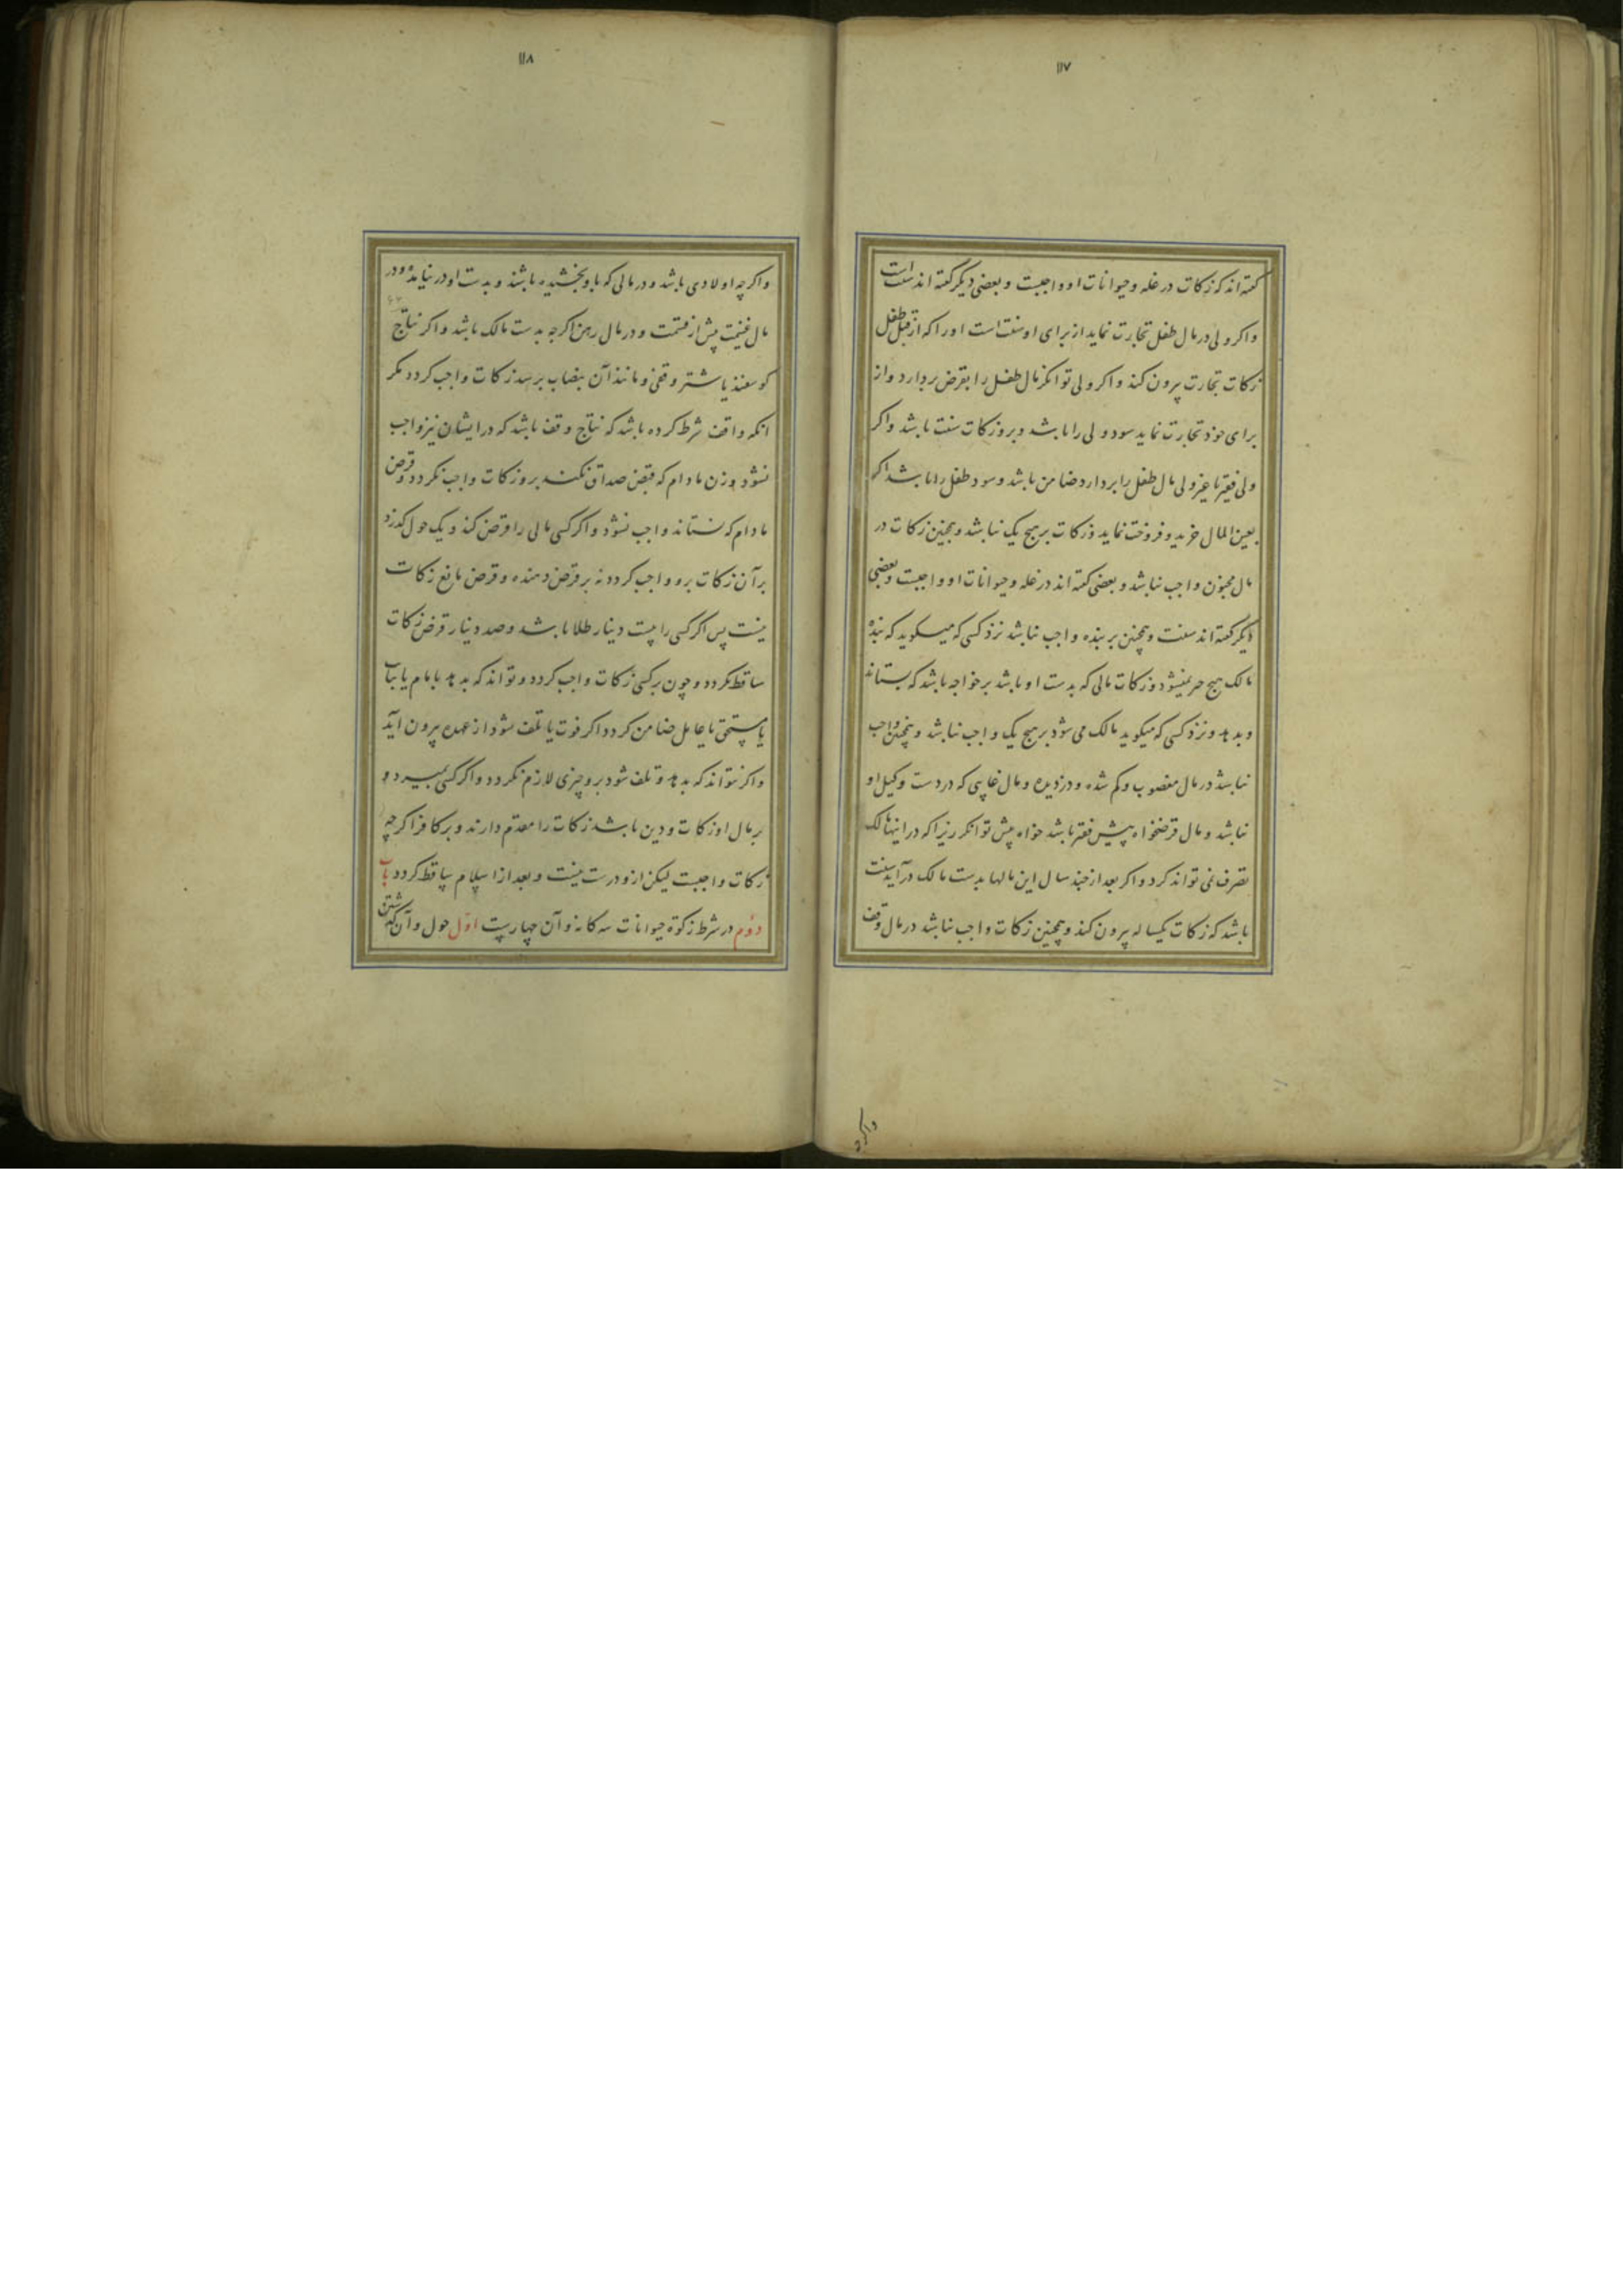 ۱۱۷
گفته‌اند که زکات در غله و حیوانات او واجبست و بعضی دیگر گفته‌اند سنت است
و اگر ولی در مال طفل تجارت نماید از برای او سنت است او را که از قبل طفل
زکات تجارت بیرون کند و اگر ولی توانگر مال طفل را بقرض بردارد و از
برای خود تجارت نماید سود ولی را باشد و برو زکات سنت باشد و اگر
ولی فقیر یا غیر ولی مال طفل را بردارد ضامن باشد و سود طفل را باشد اگر
بعین المال خرید و فروخت نماید و زکات بر هیچ یک نباشد و همچنین زکات در
مال مجنون واجب نباشد و بعضی گفته‌اند در غله و حیوانات او واجبست و بعضی
دیگر گفته‌اند سنت و همچنین بر بنده واجب نباشد نزد کسی که میگوید که بنده
مالک هیچ چیز نمیشود و زکات مالی که بدست او باشد بر خواجه باشد که بستاند
و بدهد و نزد کسی که میگوید مالک می شود بر هیچ یک واجب نباشد و همچنین واجب
نباشد در مال مغصوب و گم شده و دزدیده و مال غایبی که در دست وکیل او
نباشد و مال قرضخواه پیش فقیر باشد خواه پیش توانگر زیرا که در اینها مالک
تصرف نمی تواند کرد و اگر بعد از چند سال این مالها بدست مالک درآید سنت
باشد که زکات یکساله بیرون کند و همچنین زکات واجب نباشد در مال وقف
واگرچه
۱۱۸
و اگرچه اولادی باشد و در مالی که باو بخشیده باشند و بدست او در نیامده و در
مال غنیمت پیش از قسمت و در مال رهن اگرچه بدست مالک باشد و اگر نتاج
گوسفند یا شتر وقفی و مانند آن بنصاب برسد زکات واجب گردد مگر
انکه واقف شرط کرده باشد که نتاج وقف باشد که در ایشان نیز واجب
نشود و زن مادام که قبض صداق نکند برو زکات واجب نگردد و قرض
مادام که نستاند واجب نشود و اگر کسی مالی را قرض کند و یک حول گذرد
بر آن زکات برو واجب گردد نه بر قرض دهنده و قرض مانع زکات
نیست پس اگر کسی را بیست دینار طلا باشد و صد دینار قرض زکات
ساقط نگردد و چون بر کسی زکات واجب گردد و تواند که بدهد بامام یا نایب
یا مستحق یا عامل ضامن گردد اگر فوت یا تلف شود از عهده بیرون آید
و اگر نتواند که بدهد و تلف شود برو چیزی لازم نگردد و اگر کسی بمیرد و
بر مال او زکات و دین باشد زکات را مقدم دارند و بر کافر اگرچه
زکات واجبست لیکن ازو درست نیست و بعد از اسلام ساقط گردد باب
دوم در شرط زکوة حیوانات سه کانه و آن چهارست اول حول و آن گذشتن